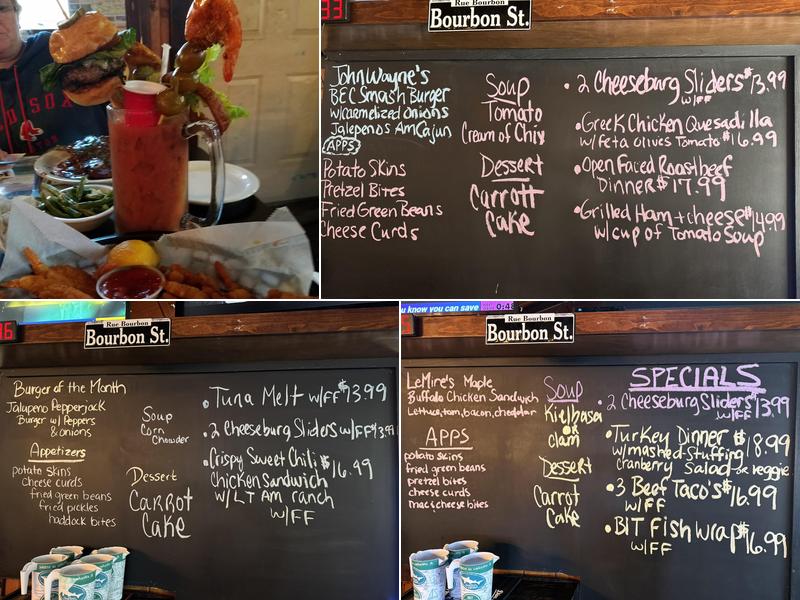 SOX
33
Rue Bourbon
Bourbon St.
John Wayne's
BEC Smash Burger
w/carmelized onions
Jalepenos Am Cajun
APPS
Potato Skins
Pretzel Bites
Fried Green Beans
Cheese Curds
Soup
Tomato
Cream of Chix
Dessert
Carrott
Cake
• 2 Cheeseburg Sliders $13.99
w/FF
• Greek Chicken Quesadilla
w/feta olives Tomato $16.99
• Open Faced Roastbeef
Dinner $17.99
• Grilled Ham + cheese $14.99
w/cup of Tomato Soup
16
Rue Bourbon
Bourbon St.
Burger of the Month
Jalapeno Pepperjack
Burger w/ Peppers
& onions
Appetizers
potato skins
cheese curds
fried green beans
fried pickles
haddock bites
Soup
Corn
Chowder
Dessert
Carrot
Cake
• Tuna Melt w/FF $13.99
• 2 Cheeseburg Sliders w/FF $13.99
• Crispy Sweet Chili $16.49
Chicken Sandwich
w/LT Am ranch
w/FF
u know you can save
0:48
Rue Bourbon
Bourbon St.
LeMire's Maple
Buffalo Chicken Sandwich
Lettuce, tom, bacon, cheddar
APPS
potato skins
fried green beans
pretzel bites
cheese curds
mac & cheese bites
Soup
Kielbasa
or
clam
Dessert
Carrot
Cake
SPECIALS
• 2 Cheeseburg Sliders $13.99
w/FF
• Turkey Dinner $18.99
w/mashed-Stuffing
cranberry Salad or veggie
• 3 Beef Taco's $16.99
w/FF
• BLT Fish wrap $16.99
w/FF